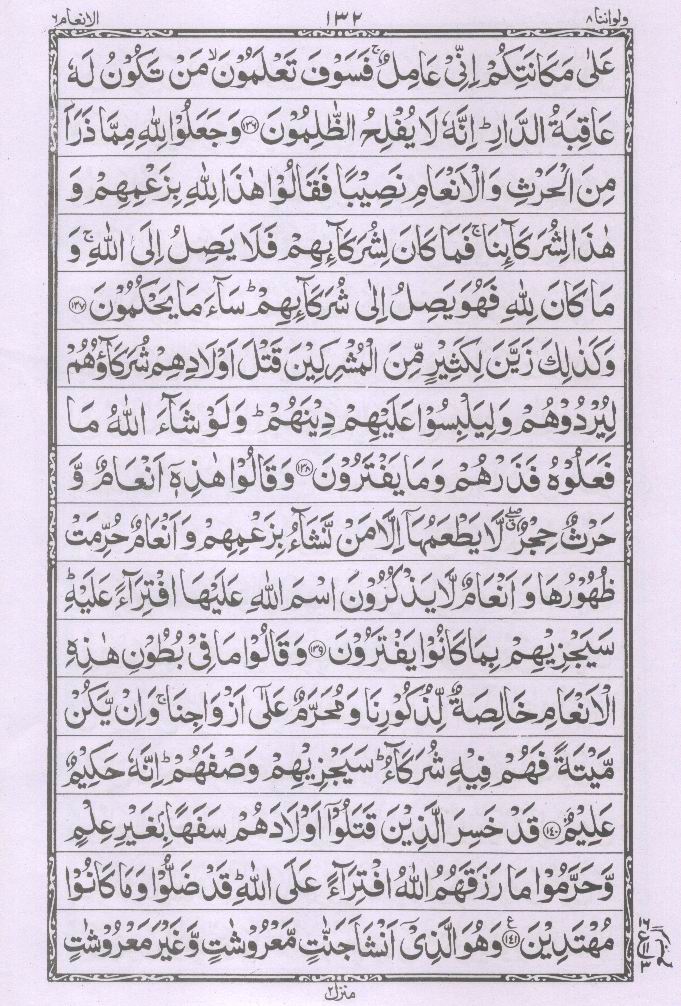 ولواننا ٨ ١٣٢ الانعام ٦
عَلٰى مَكَانَتِكُمْ اِنِّىْ عَامِلٌ ۚ فَسَوْفَ تَعْلَمُوْنَ ۙ مَنْ تَكُوْنُ لَهٗ
عَاقِبَةُ الدَّارِ ؕ اِنَّهٗ لَا يُفْلِحُ الظّٰلِمُوْنَ ﴿۱۳۶﴾ وَجَعَلُوْا لِلّٰهِ مِمَّا ذَرَاَ
مِنَ الْحَرْثِ وَالْاَنْعَامِ نَصِيْبًا فَقَالُوْا هٰذَا لِلّٰهِ بِزَعْمِهِمْ وَ
هٰذَا لِشُرَكَآئِنَا ۚ فَمَا كَانَ لِشُرَكَآئِهِمْ فَلَا يَصِلُ اِلَى اللّٰهِ ۚ وَ
مَا كَانَ لِلّٰهِ فَهُوَ يَصِلُ اِلٰى شُرَكَآئِهِمْ ؕ سَآءَ مَا يَحْكُمُوْنَ ﴿۱۳۷﴾
وَكَذٰلِكَ زَيَّنَ لِكَثِيْرٍ مِّنَ الْمُشْرِكِيْنَ قَتْلَ اَوْلَادِهِمْ شُرَكَآؤُهُمْ
لِيُرْدُوْهُمْ وَلِيَلْبِسُوْا عَلَيْهِمْ دِيْنَهُمْ ؕ وَلَوْ شَآءَ اللّٰهُ مَا
فَعَلُوْهُ فَذَرْهُمْ وَمَا يَفْتَرُوْنَ ﴿۱۳۸﴾ وَقَالُوْا هٰذِهٖۤ اَنْعَامٌ وَّ
حَرْثٌ حِجْرٌ ۖق لَّا يَطْعَمُهَاۤ اِلَّا مَنْ نَّشَآءُ بِزَعْمِهِمْ وَاَنْعَامٌ حُرِّمَتْ
ظُهُوْرُهَا وَاَنْعَامٌ لَّا يَذْكُرُوْنَ اسْمَ اللّٰهِ عَلَيْهَا افْتِرَآءً عَلَيْهِ ؕ
سَيَجْزِيْهِمْ بِمَا كَانُوْا يَفْتَرُوْنَ ﴿۱۳۹﴾ وَقَالُوْا مَا فِىْ بُطُوْنِ هٰذِهِ
الْاَنْعَامِ خَالِصَةٌ لِّذُكُوْرِنَا وَمُحَرَّمٌ عَلٰٓى اَزْوَاجِنَا ۚ وَاِنْ يَّكُنْ
مَّيْتَةً فَهُمْ فِيْهِ شُرَكَآءُ ؕ سَيَجْزِيْهِمْ وَصْفَهُمْ ؕ اِنَّهٗ حَكِيْمٌ
عَلِيْمٌ ﴿۱۴۰﴾ قَدْ خَسِرَ الَّذِيْنَ قَتَلُوْۤا اَوْلَادَهُمْ سَفَهًۢا بِغَيْرِ عِلْمٍ
وَّحَرَّمُوْا مَا رَزَقَهُمُ اللّٰهُ افْتِرَآءً عَلَى اللّٰهِ ؕ قَدْ ضَلُّوْا وَمَا كَانُوْا
مُهْتَدِيْنَ ﴿۱۴۱﴾ ع وَهُوَ الَّذِىْۤ اَنْشَاَ جَنّٰتٍ مَّعْرُوْشٰتٍ وَّغَيْرَ مَعْرُوْشٰتٍ
١٦
ع ١١
٣
منزل ٢